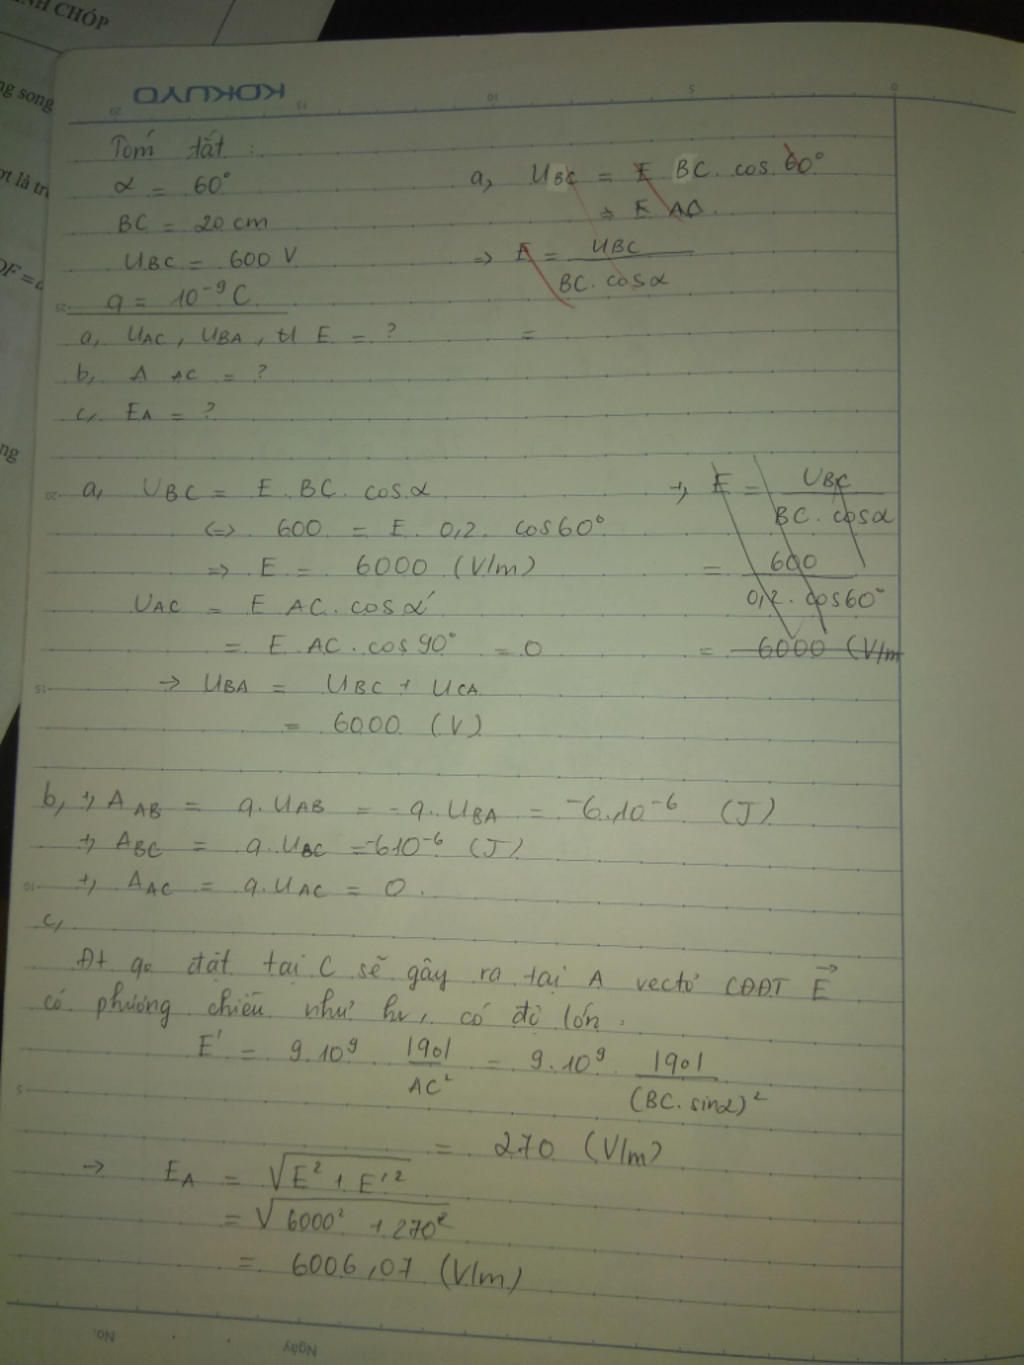 NH CHÓP
ng song
KOKUYO
20 15 10 5 0
Tóm tắt :
α = 60°
BC = 20 cm
UBC = 600 V
q = 10⁻⁹ C
a, UAC, UBA, E = ?
b, A AC = ?
c, EA = ?
a, UBC = E BC. cos 60°
E AC
=> E = UBC / BC. cosα
=
a, UBC = E. BC. cosα
<=> 600 = E. 0,2. cos60°
=> E = 6000 (V/m)
UAC = E AC. cosα'
= E AC. cos 90° = 0
-> UBA = UBC + UCA
= 6000 (V)
+, E = UBC / BC. cosα
= 600 / 0,2. cos60°
= 6000 (V/m
b, +, AAB = q. UAB = - q. UBA = -6.10⁻⁶ (J)
+, ABC = q. UBC = -6 10⁻⁶ (J)
+, AAC = q. UAC = 0.
c,
Đt q₀ đặt tại C sẽ gây ra tại A vectơ CĐĐT E→
có phương chiều như hv, có độ lớn :
E' = 9.10⁹ |q₀| / AC² = 9.10⁹. |q₀| / (BC. sinα)²
= 270 (V/m)
-> EA = √E² + E'²
= √6000² + 270²
= 6006,07 (V/m)
No.
Ngày